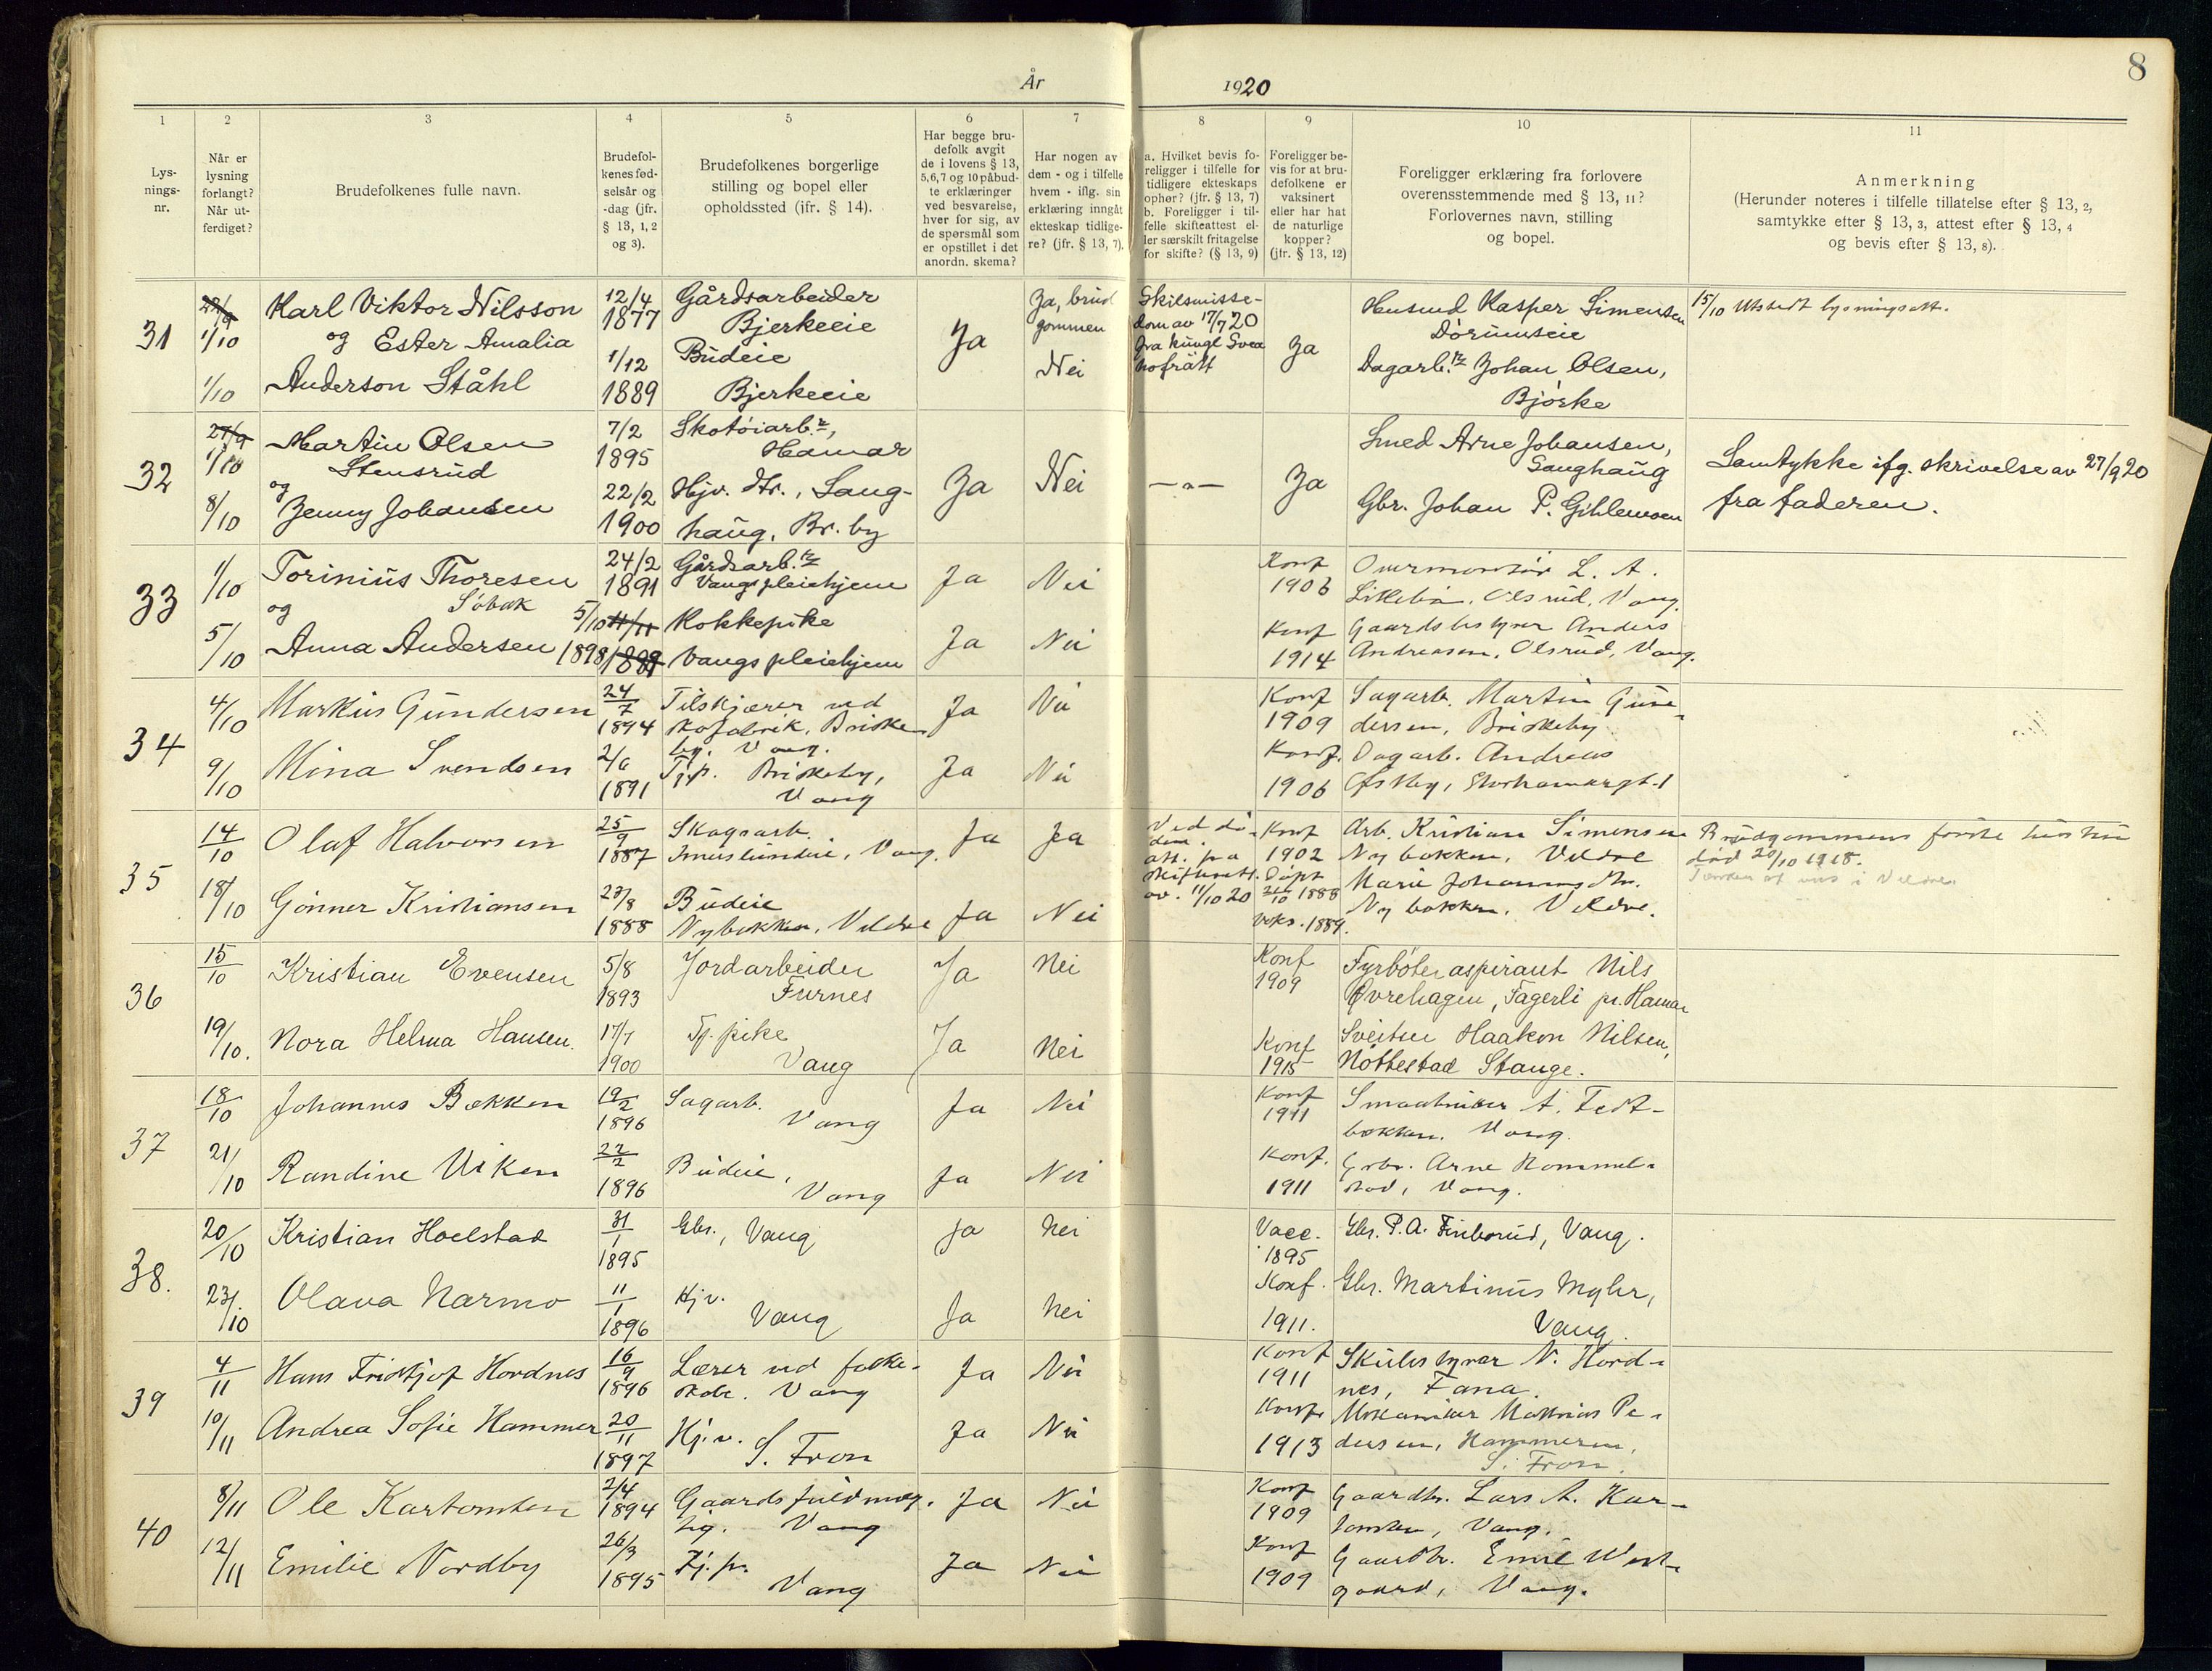 8
År 1920
1 2 3 4 5 6 7 8 9 10 11
Lys-
nings-
nr.
Når er
lysning
forlangt?
Når ut-
ferdiget?
Brudefolkenes fulle navn.
Brudefol-
kenes fød-
selsår og
-dag (jfr.
§ 13, 1, 2
og 3).
Brudefolkenes borgerlige
stilling og bopel eller
opholdssted (ifr. § 14).
Har begge bru-
defolk avgit
de i lovens § 13,
5,6,7 og 10 påbud-
te erklæringer
ved besvarelse,
hver for sig, av
de spørsmål som
er opstillet i det
anordn. skema?
Har nogen av
dem - og i tilfelle
hvem - iflg. sin
erklæring inngåt
ekteskap tidlige-
re? (jfr. § 13, 7).
a. Hvilket bevis fo-
religger i tilfelle for
tidligere ekteskaps
ophør? (jfr. § 13, 7)
b. Foreligger i til-
felle skifteattest el-
ler særskilt fritagelse
for skifte? (§ 13, 9)
Foreligger be-
vis for at bru-
defolkene er
vaksinert
eller har hat
de naturlige
kopper?
(jfr. § 13, 12)
Foreligger erklæring fra forlovere
overensstemmende med § 13, 11?
Forlovernes navn, stilling
og bopel.
Anmerkning
(Herunder noteres i tilfelle tillatelse efter § 13, 2,
samtykke efter § 13, 3, attest efter § 13, 4
og bevis efter § 13, 8).
31
22/9
1/10
1/10
Karl Viktor Nilsson
og Ester Amalia
Anderson Ståhl
12/4
1877
1/12
1889
Gårdsarbeider
Bjerkeeie
Budeie
Bjerkeeie
Ja
Ja, brud
gommen
Nei
Skilsmisse-
dom av 17/7 20
fra kungl Svea
hofrätt
Ja
Husmd Kasper Simensen
Dørumseie
Dagarb.r Johan Olsen,
Bjørke
15/10 Utstedt lysningsatt.
32
27/9
1/10
8/10
Martin Olsen
Stensrud
og
Jenny Johansen
7/2
1895
22/2
1900
Skotøiarb.r,
Hamar
Hjv. dtr., Saug-
haug, Br. by
Ja
Nei
— " —
Ja
Smed Arne Johansen,
Saughaug
Gbr. Johan P. Gihlemoen
Samtykke ifg. skrivelse av 27/9 20
fra faderen.
33
1/10
5/10
Torinius Thoresen
Søbak
og
Anna Andersen
24/2
1891
5/10 11/11
1898 1889
Gårdsarb.r
Vangs pleiehjem
Kokkepike
Vangs pleiehjem
Ja
Ja
Nei
Nei
Konf
1906
Konf
1914
Overmontør L. A.
Olsrud, Vang.
Gaardsbestyrer Anders
Andreasen, Olsrud, Vang.
34
4/10
9/10
Markus Gundersen
Mina Svendsen
24/7
1894
2/6
1891
Tilskjærer ved
skofabrik, Briske-
by. Vang.
Tj.p. Briskeby,
Vang
Ja
Ja
Nei
Nei
Konf
1909
Konf.
1906
Sagarb. Martin Gun-
dersen, Briskeby
Dagarb. Andreas
Østby, Storhamargt. 1
35
14/10
18/10
Olaf Halvorsen
Gønner Kristiansen
25/9
1887
23/8
1888
Skogsarb.
Vang.
Budeie
Nybakken, Veldre
Ja
Ja
Ja
Nei
Ved dø-
den.
att. fra
skifterett.
av. 11/10 20
Konf
1902
Døpt
21/10 1888
vaks. 1889.
Arb. Kristian Simensen
Nybakken, Veldre
Marie Johannesdtr.
Nybakken, Veldre.
Brudgommens første hustru
død 20/10 1918.
36
15/10
19/10.
Kristian Evensen
Nora Helma Hansen.
5/8
1893
17/7
1900
Jordarbeider
Furnes
Tj. pike
Vang
Ja
Ja
Nei
Nei
Konf
1909
Konf
1915
Fyrbøteraspirant Nils
Øvrehagen, Fagerli pr. Hamar
Sveitser Haakon Nilsen,
Nøttestad Stange.
37
18/10
21/10
Johannes Bakken
Randine Viken
19/2
1896
22/2
1896
Sagarb.
Vang
Budeie,
Vang
Ja
Ja
Nei
Nei
Konf
1911
Konf.
1911
Smaabruker A. Tedt-
bakken. Vang.
Gbr. Arne Kommel-
stad, Vang.
38.
20/10
23/10
Kristian Hoelstad
Olava Narmo
31/1
1895
11/1
1896
Gbr., Vang
Hjv.
Vang
Ja
Ja
Nei
Nei
Vacc.
1895
Konf.
1911.
Gbr. P.A. Finborud, Vang.
Gbr. Martinus Myhr,
Vang.
39
4/11
10/11
Hans Fridtjof Hordnes
Andrea Sofie Hammer
16/9
1896
20/11
1897
Lærer ved folke-
skole. Vang
Hj.v.
S. Fron
Ja
Ja
Nei
Nei
Konf
1911
Konf.
1913
Skulestyrar N. Hord-
nes, Fana.
Mekaniker Mathias Pe-
dersen, Hammeren,
S. Fron.
40
8/11
12/11
Ole Kartomten
Emilie Nordby
2/4
1894
26/3
1895
Gaardsfuldmæg-
tig. Vang
Tj.p.
Vang
Ja
Ja
Nei
Nei
Konf
1909
Konf
1909
Gaardbr. Lars A. Kar-
tomten, Vang.
Gaardbr. Emil West-
gaard, Vang.